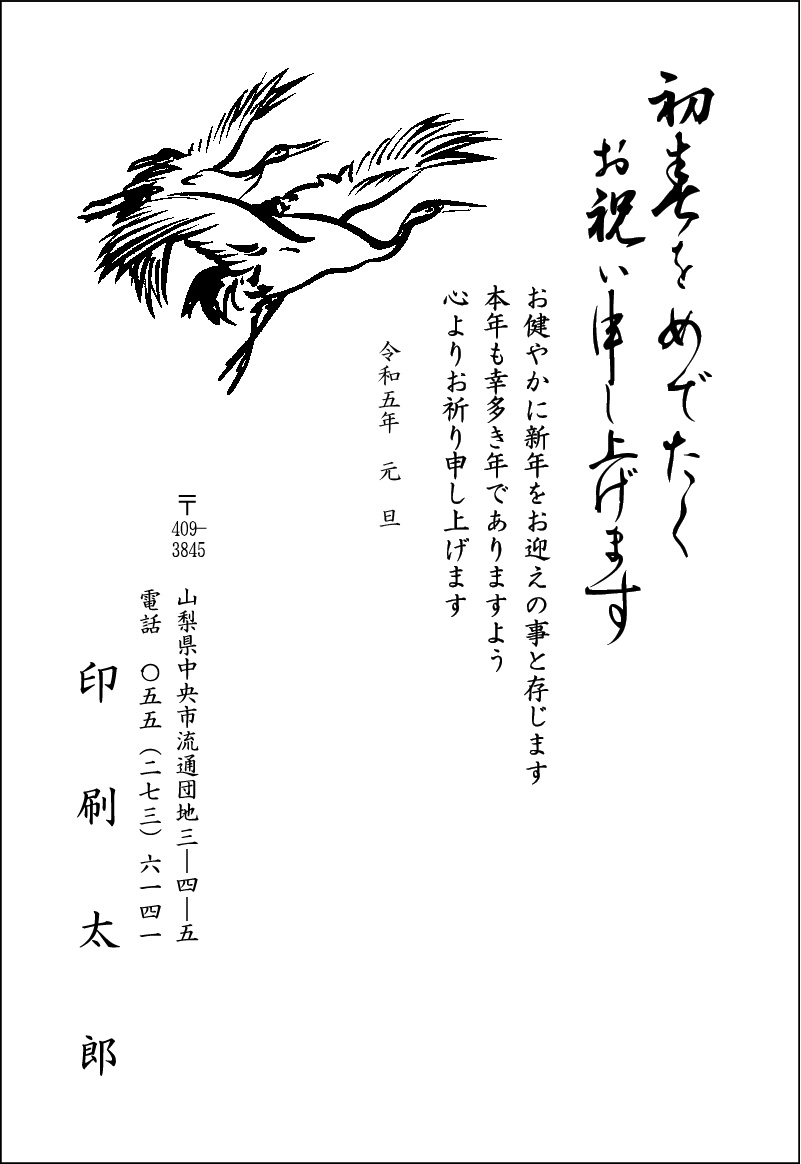 初春をめでたく
お祝い申し上げます
お健やかに新年をお迎えの事と存じます
本年も幸多き年でありますよう
心よりお祈り申し上げます
令和五年　元　旦
〒
409-
3845
山梨県中央市流通団地三―四―五
電話　〇五五（二七三）六一四一
印刷太郎